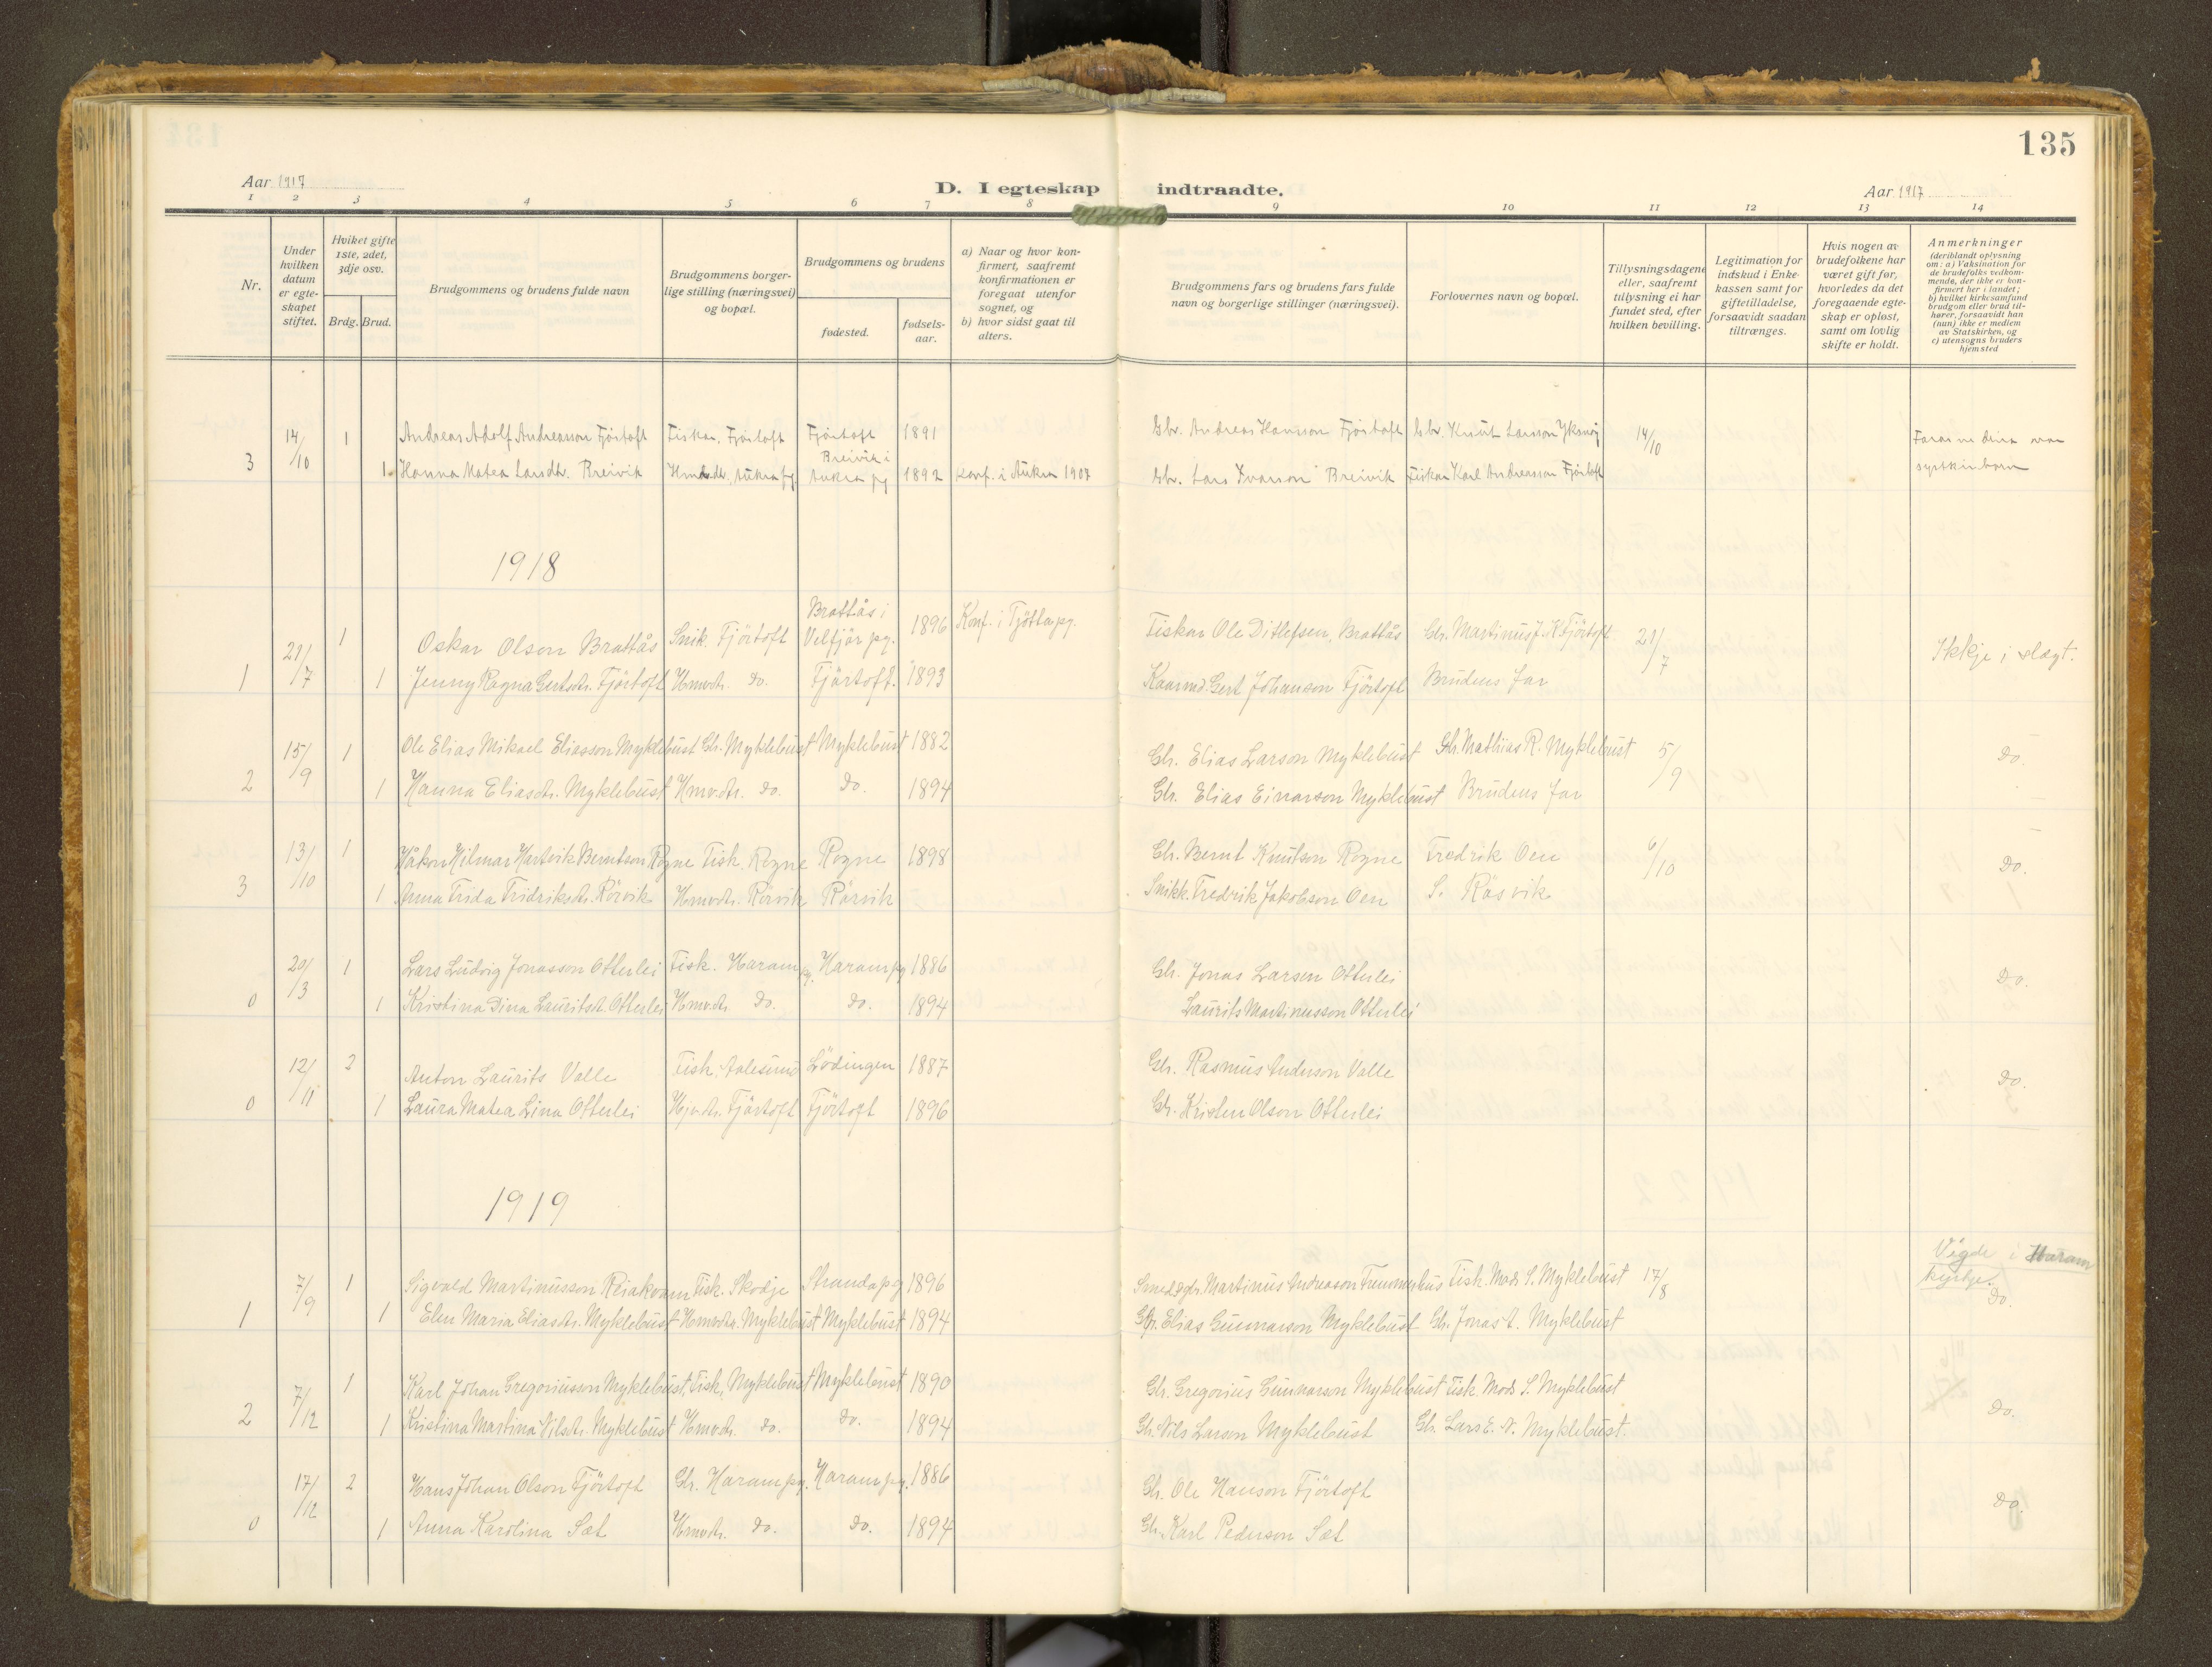 135
Aar 1917
D. I egteskap indtraadte.
Aar 1917
1 2 3 4 5 6 7 8 9 10 11 12 13 14
Nr.
Under hvilken datum er egteskapet stiftet.
Hviket gifte 1ste, 2det, 3dje osv.
Brdg. Brud.
Brudgommens og brudens fulde navn
Brudgommens borgerlige stilling (næringsvei) og bopæl.
Brudgommens og brudens
fødested.
fødselsaar.
a) Naar og hvor konfirmert, saafremt konfirmationen er foregaat utenfor sognet, og
b) hvor sidst gaat til alters.
Brudgommens fars og brudens fars fulde navn og borgerlige stillinger (næringsvei).
Forlovernes navn og bopæl.
Tillysningsdagene eller, saafremt tillysning ei har fundet sted, efter hvilken bevilling.
Legitimation for indskud i Enkekassen samt for giftetilladelse, forsaavidt saadan tiltrænges.
Hvis nogen av brudefolkene har været gift før, hvorledes da det foregaaende egteskap er opløst, samt om lovlig skifte er holdt.
Anmerkninger (deriblandt oplysning om: a) Vaksination for de brudefolks vedkommende, der ikke er konfirmert her i landet; b) hvilket kirkesamfund brudgom eller brud tilhører, forsaavidt han (hun) ikke er medlem av Statskirken, og c) utensogns bruders hjemsted
14/10 1 Andreas Adolf Andreasson Fjörtoft Fiskar, Fjörtoft Fjörtoft 1891 Gbr. Andreas Hansson Fjörtoft Gbr. Knut Larsson 14/10
3 1 Hanna Matea Larsdtr. Breivik Hmvdtr. Aukra pg. Breivik i Aukra pg 1892 Konf. i Aukra 1907 Gbr. Lars Ivarson Breivik Fiskar Karl Andreasson Fjörtoft syskinborn
1918
21/7 1 Oskar Olson Brattås Snik. Fjörtoft Brattås i Velfjör pg. 1896 Konf. i Tjötta pg. Fiskar Ole Ditlefsen, Brattås Gbr. Martinus J. K. Fjörtoft 21/7 Ikkje i slægt.
1 1 Jenny Ragna Gertsdtr. Fjörtoft Hmvdtr. do. Fjörtoft. 1893 Kaarmd. Gert Johanson Fjörtoft Brudens far
15/9 1 Ole Elias Mikael Eliasson Myklebust Gbr. Myklebust Myklebust 1882 Gbr. Elias Larson Myklebust Gbr. Mathias R. Myklebust 5/9 Do.
2 1 Hanna Eliasdtr. Myklebust Hmvdtr. do. do. 1894 Gbr. Elias Einarson Myklebust Brudens far
13/10 1 Håkon Hilmar Hartvik Berntson Rogne Fisk. Rogne Rogne 1898 Gbr. Bernt Knutson Rogne Fredrik Oen 6/10 Do.
3 1 Anna Frida Fridriksdtr. Rörvik Hmvdtr. Rörvik Rörvik Snikk. Fredrik Jakobson Oen S. Råsvik
20/3 1 Lars Ludvig Jonasson Otterlei Fisk. Haram pg. Haram pg 1886 Gbr. Jonas Larsen Otterlei Do.
0 1 Kristina Dina Lauritsdt. Otterlei Hmvdtr. do. do. 1894 Laurits Martinusson Otterlei
12/11 2 Anton Laurits Valle Fisk. Aalesund Lödingen 1887 Gbr. Rasmus Anderson Valle Do.
0 1 Laura Matea Lina Otterlei Hjv.dtr. Fjörtoft Fjörtoft 1896 Gbr. Kristen Olson Otterlei
1919
7/9 1 Sigvald Martinusson Fisk. Skodje Stranda pg 1896 Martinus Andreason Fisk. Mads S. Myklebust 17/8 Vigde i Haram kyrkje. Do.
1 1 Elen Maria Eliasdtr. Myklebust Hmvdtr. Myklebust Myklebust 1894 Gbr. Elias Gunnarson Myklebust Gbr. Jonas A. Myklebust
7/12 1 Karl Johan Gregoriusson Myklebust, Fisk, Myklebust Myklebust 1890 Gbr. Gregorius Gunnarson Myklebust Fisk. Mads S. Myklebust Do.
2 1 Kristina Martina Nilsdtr. Myklebust Hmvdtr. do. do. 1894 Gbr. Nils Larson Myklebust Gbr. Lars E. N. Myklebust.
17/12 2 Hans Johan Olson Fjörtoft Gbr. Haram pg. Haram pg. 1886 Gbr. Ole Hanson Fjörtoft Do.
0 1 Anna Karolina Sæt Hmvdtr. do. do. 1894 Gbr. Karl Pederson Sæt